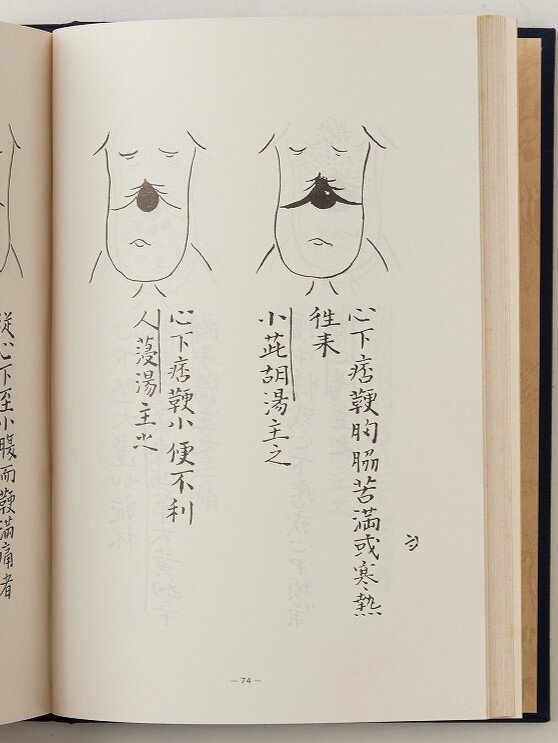 心下痞鞕胸脇苦満或寒熱
徃来
小茈胡湯主之
心下痞鞕小便不利
人薓湯主之
従心下至小腹而鞕満痛者
— 74 —